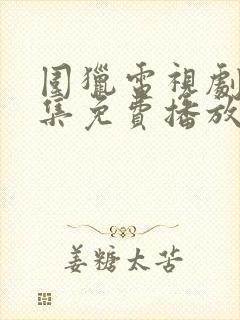 围獵電視劇
集免費播放
姜糖太苦